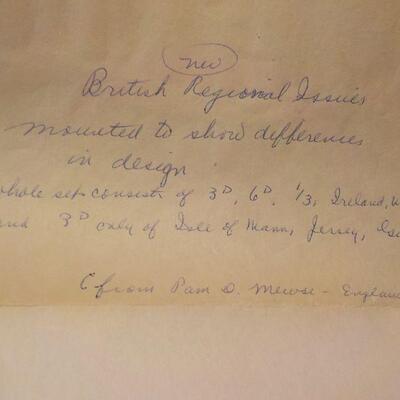 new
British Regional Issues
mounted to show differences
in design
whole set consists of 3D, 6D, 1/3, Ireland, W
and 3D only of Isle of Mann, Jersey,
from Pam D. Mewse - England